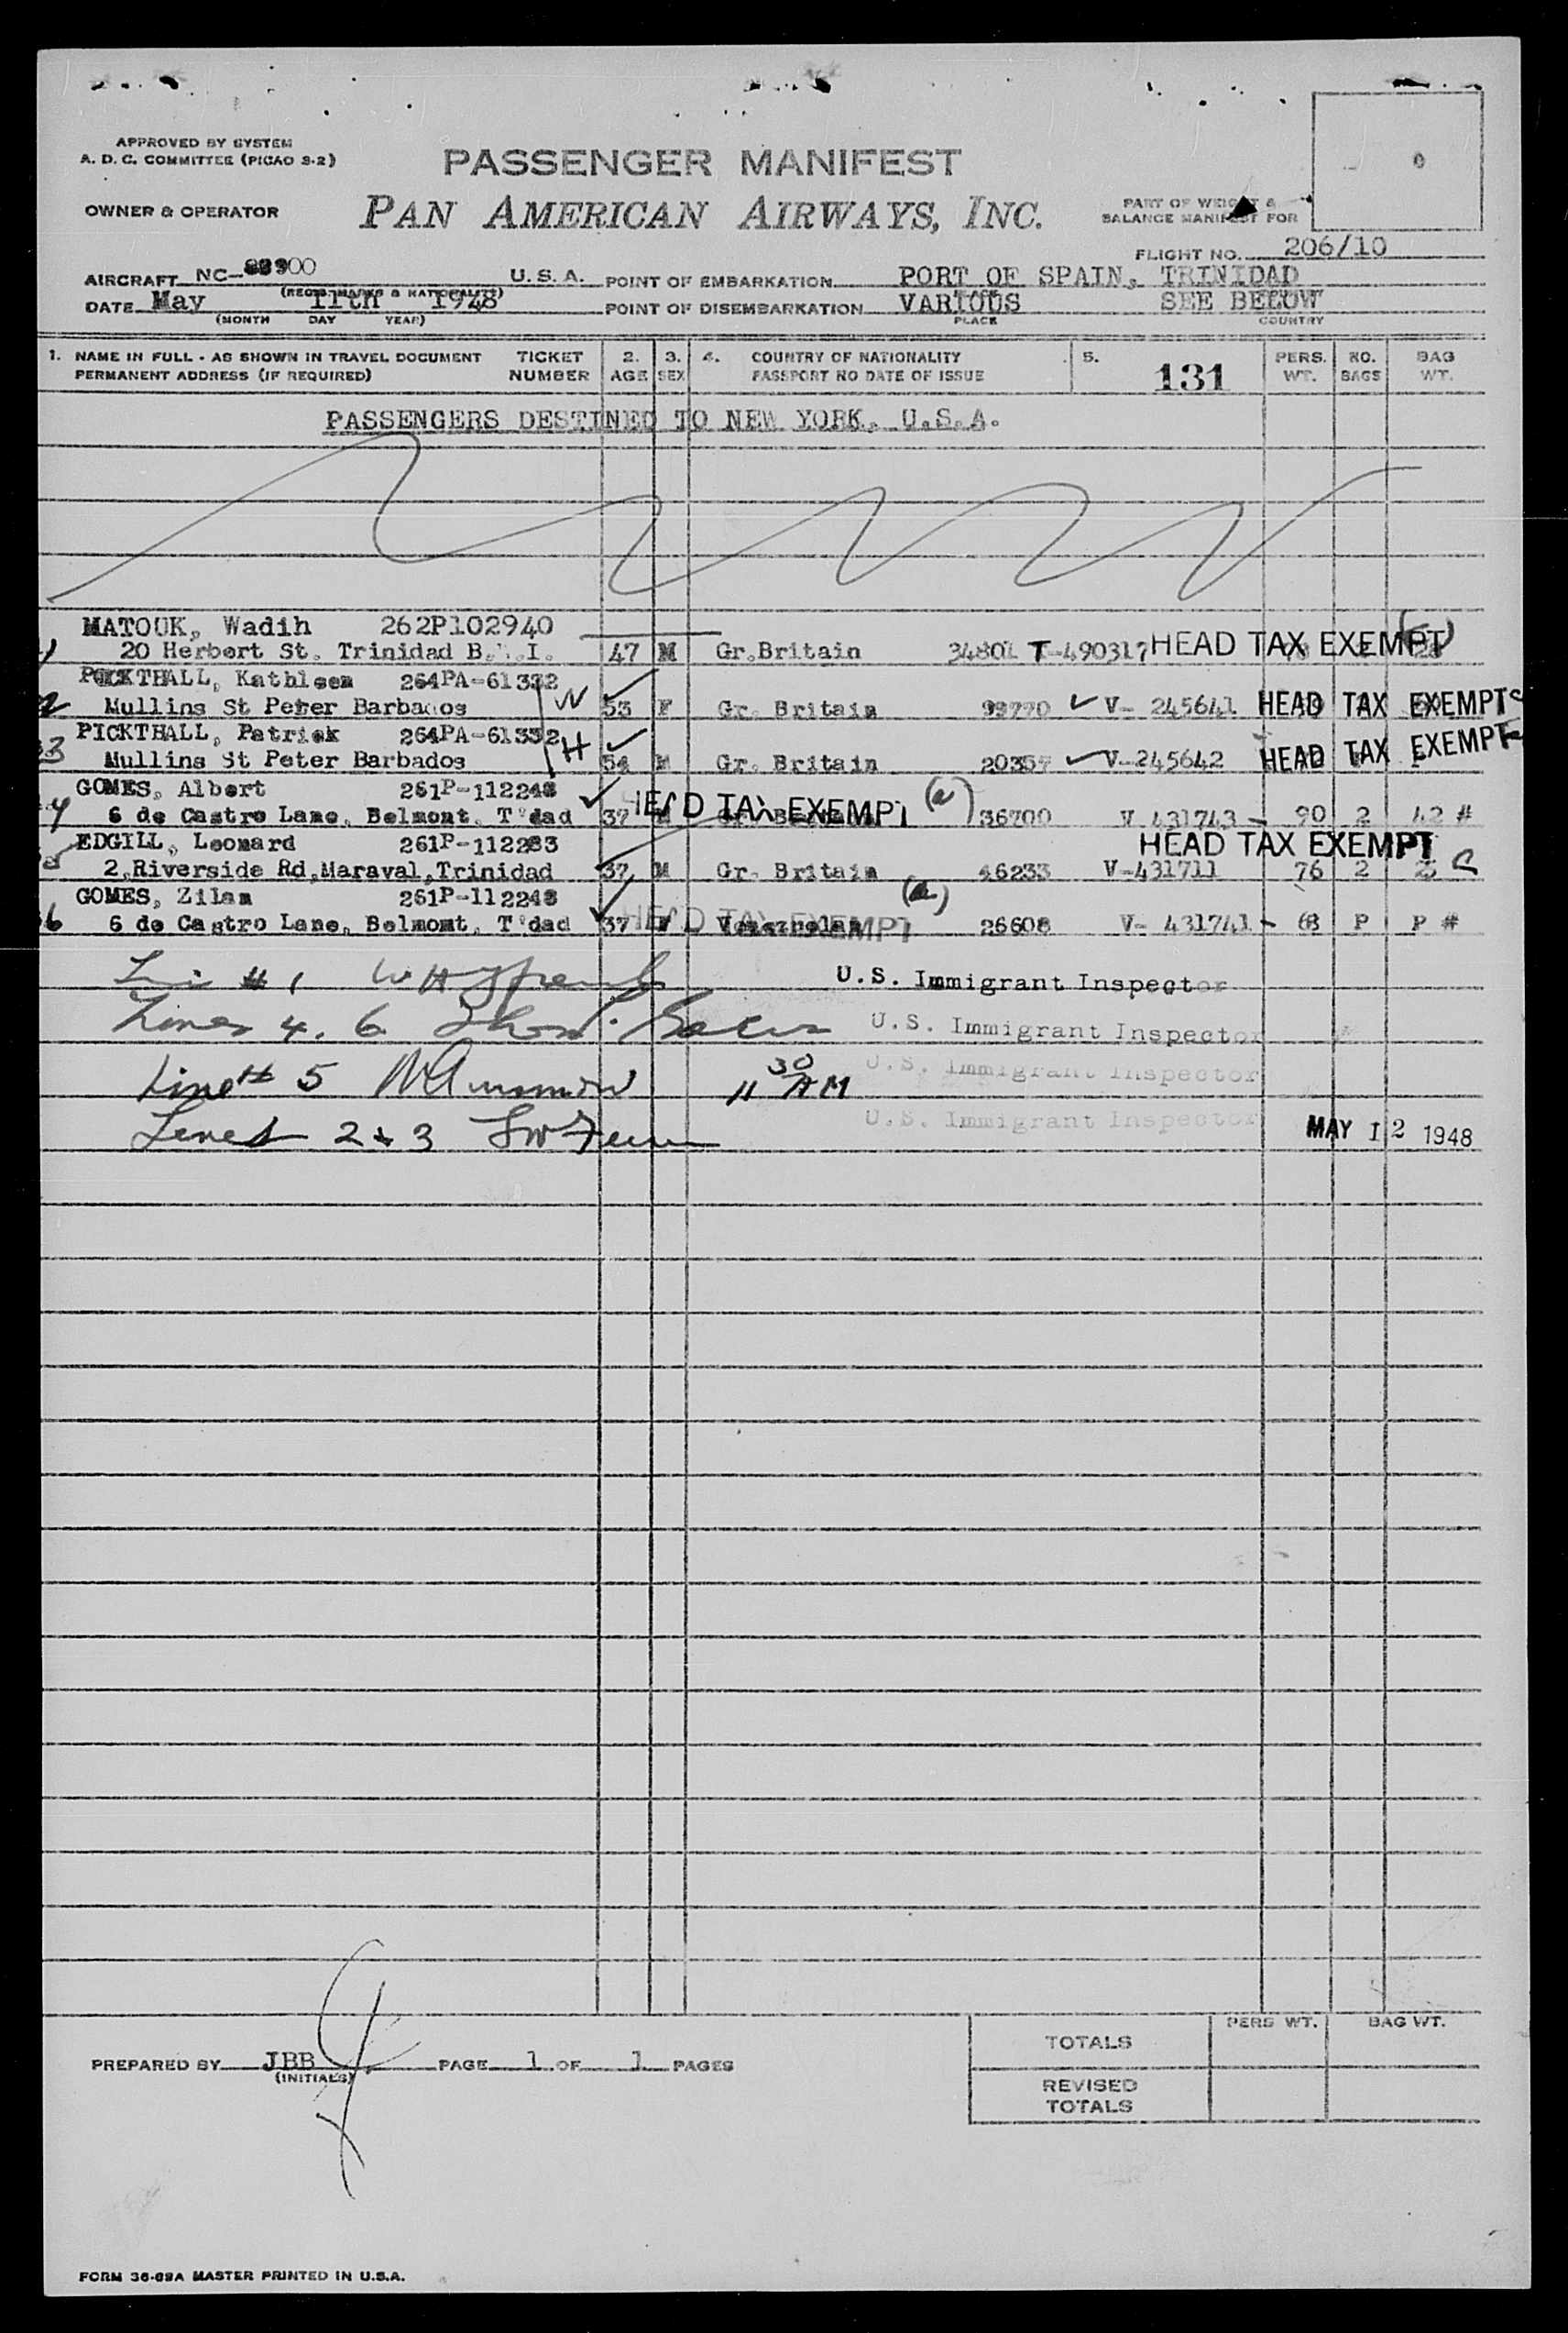 APPROVED BY SYSTEM
A. D. C. COMMITTEE (PICAO S-2)
PASSENGER MANIFEST
OWNER & OPERATOR
PAN AMERICAN AIRWAYS, INC.
PART OF WEIGHT &
BALANCE MANIFEST FOR
FLIGHT NO. 206/10
AIRCRAFT NC- U.S.A. POINT OF EMBARKATION PORT OF SPAIN, TRINIDAD
(REGIS. MARKS & NATIONALITY)
DATE May 11th 1948 POINT OF DISEMBARKATION VARIOUS SEE BELOW
(MONTH DAY YEAR) PLACE COUNTRY
1. NAME IN FULL - AS SHOWN IN TRAVEL DOCUMENT TICKET 2. 3. 4. COUNTRY OF NATIONALITY 5. PERS. NO. BAG
PERMANENT ADDRESS (IF REQUIRED) NUMBER AGE SEX PASSPORT NO DATE OF ISSUE 131 WT. BAGS WT.
PASSENGERS DESTINED TO NEW YORK, U.S.A.
MATOUK, Wadih 262P102940
20 Herbert St. Trinidad B.W.I. 47 M Gr.Britain 34801 T-490317 HEAD TAX EXEMPT
PICKTHALL, Kathleen 264PA-61332
2 Mullins St Peter Barbados W 53 F Gr. Britain 99770 V- 245641 HEAD TAX EXEMPT
PICKTHALL, Patrick 264PA-61332
3 Mullins St Peter Barbados H 54 M Gr. Britain V-245642 HEAD TAX EXEMPT
GOMES, Albert 261P-112248
4 6 de Castro Lane, Belmont, T'dad 37 M HEAD TAX EXEMPT (a) 36700 V 431743 - 90 2 42 #
EDGILL, Leonard 261P-112283 HEAD TAX EXEMPT
5 2,Riverside Rd,Maraval,Trinidad 37 M Gr. Britain 46233 V-431711 76 2
GOMES, Zilam 261P-112248 (a)
6 6 de Castro Lane, Belmont, T'dad 37 F HEAD TAX EXEMPT Venezuelan 26608 V- 431741 - 68 P P #
# 1 U.S. Immigrant Inspector
Lines 4. 6 U.S. Immigrant Inspector
Line # 5 11 30 AM U.S. Immigrant Inspector
Lines 2 & 3 U.S. Immigrant Inspector MAY 12 1948
PERS WT. BAG WT.
TOTALS
PREPARED BY JBB PAGE 1 OF 1 PAGES
(INITIALS)
REVISED
TOTALS
FORM 36-69A MASTER PRINTED IN U.S.A.